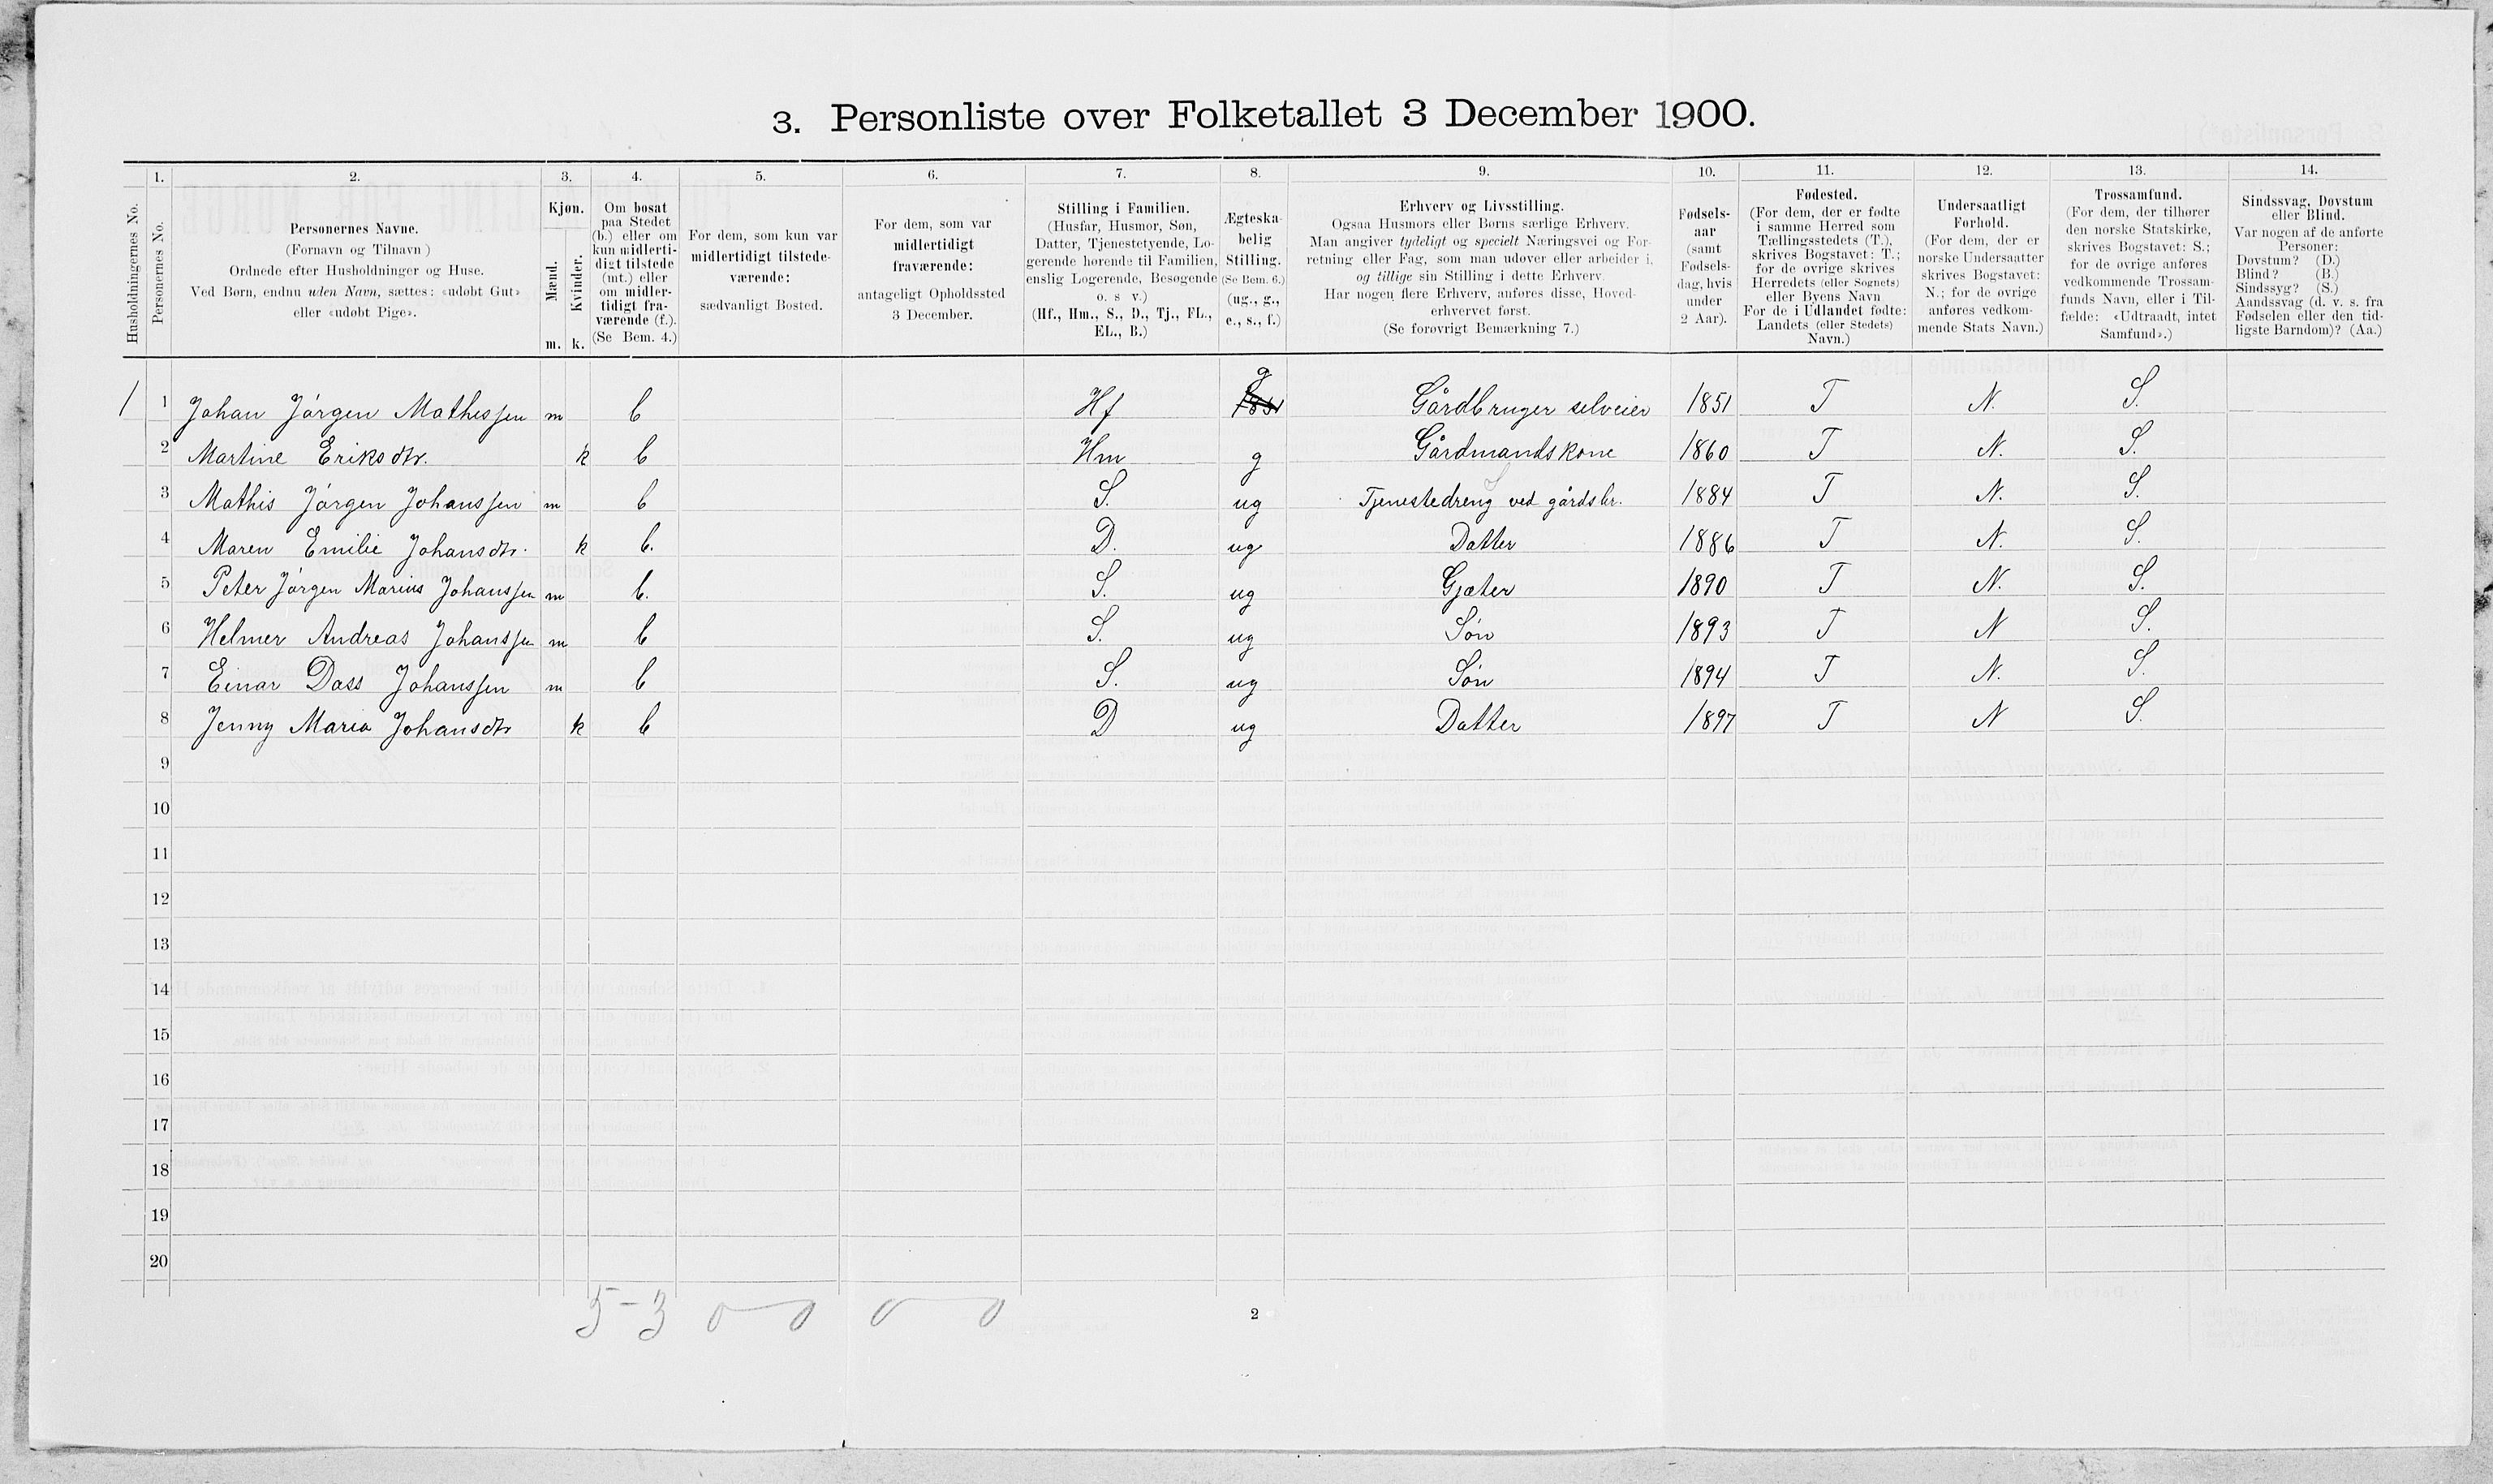 3. Personliste over Folketallet 3 December 1900.
1. 2. 3. 4. 5. 6. 7. 8. 9. 10. 11. 12. 13. 14.
Husholdningernes No.
Personernes No.
Personernes Navne.
(Fornavn og Tilnavn )
Ordnede efter Husholdninger og Huse.
Ved Børn, endnu uden Navn, sættes: «udøbt Gut»
eller «udøbt Pige».
Kjøn.
Mænd.
Kvinder.
m. k.
Om bosat
paa Stedet
(b.) eller om
kun midlerti-
digt tilstede
(mt.) eller
om midler-
tidigt fra-
værende (f.).
(Se Bem. 4.)
For dem, som kun var
midlertidigt tilstede-
værende:
sædvanligt Bosted.
For dem, som var
midlertidigt
fraværende:
antageligt Opholdssted
3 December.
Stilling i Familien.
(Husfar, Husmor, Søn,
Datter, Tjenestetyende, Lo-
gerende hørende til Familien,
enslig Logerende, Besøgende
o. s v.)
(Hf., Hm., S., D., Tj., FL.,
EL., B.)
Ægteska-
belig
Stilling.
(Se Bem. 6.)
(ug., g.,
e., s., f.)
Erhverv og Livsstilling.
Ogsaa Husmors eller Børns særlige Erhverv.
Man angiver tydeligt og specielt Næringsvei og For-
retning eller Fag, som man udøver eller arbeider i,
og tillige sin Stilling i dette Erhverv.
Har nogen flere Erhverv, anføres disse, Hoved-
erhvervet først.
(Se forøvrigt Bemærkning 7.)
Fødsels-
aar
(samt
Fødsels-
dag, hvis
under
2 Aar).
Fødested.
(For dem, der er fødte
i samme Herred som
Tællingsstedets (T.),
skrives Bogstavet: T.;
for de øvrige skrives
Herredets (eller Sognets)
eller Byens Navn
For de i Udlandet fødte:
Landets (eller Stedets)
Navn.)
Undersaatligt
Forhold.
(For dem, der er
norske Undersaatter
skrives Bogstavet:
N.; for de øvrige
anføres vedkom-
mende Stats Navn.)
Trossamfund.
(For dem, der tilhører
den norske Statskirke,
skrives Bogstavet: S.;
for de øvrige anføres
vedkommende Trossam-
funds Navn, eller i Til-
fælde: «Udtraadt, intet
Samfund».)
Sindssvag, Døvstum
eller Blind.
Var nogen af de anførte
Personer:
Døvstum? (D.)
Blind? (B.)
Sindssyg? (S.)
Aandssvag (d. v. s. fra
Fødselen eller den tid-
ligste Barndom)? (Aa.)
1 1 Johan Jørgen Mathissen m b Hf 1851 g Gårdbruger selveier 1851 T N. S.
2 Martine Eriksdtr. k b Hm g Gårdmandskone 1860 T N. S.
3 Mathis Jørgen Johanssen m b S. ug Tjenestedreng ved gårdsbr. 1884 T N. S.
4 Maren Emilie Johansdtr. k b. D. ug Datter 1886 T N. S.
5 Peter Jørgen Marius Johanssen m b. S. ug Gjæter 1890 T N. S.
6 Helmer Andreas Johanssen m b S. ug Søn 1893 T N S.
7 Einar Dass Johanssen m b S. ug Søn 1894 T N. S.
8 Jenny Maria Johansdtr k b D ug Datter 1897 T N S.
9
10
11
12
13
14
15
16
17
18
19
20
5-3 0 0 0 0
2